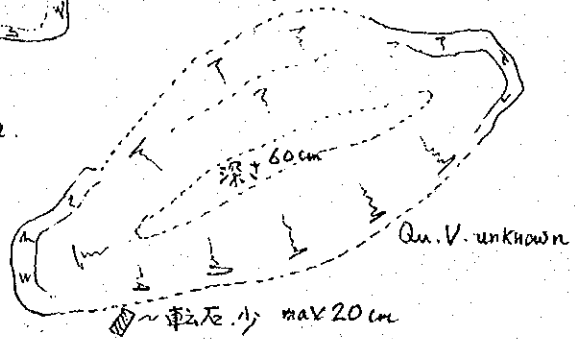 深さ 60cm
Qu. V. unknown
～転石.少 max 20cm